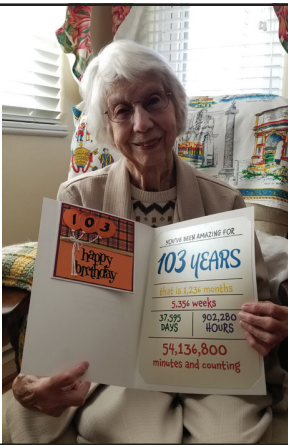 103
happy
birthday
YOU'VE BEEN AMAZING FOR
103 YEARS
that is 1,236 months
5,356 weeks
37,595
DAYS
902,280
HOURS
54,136,800
minutes and counting